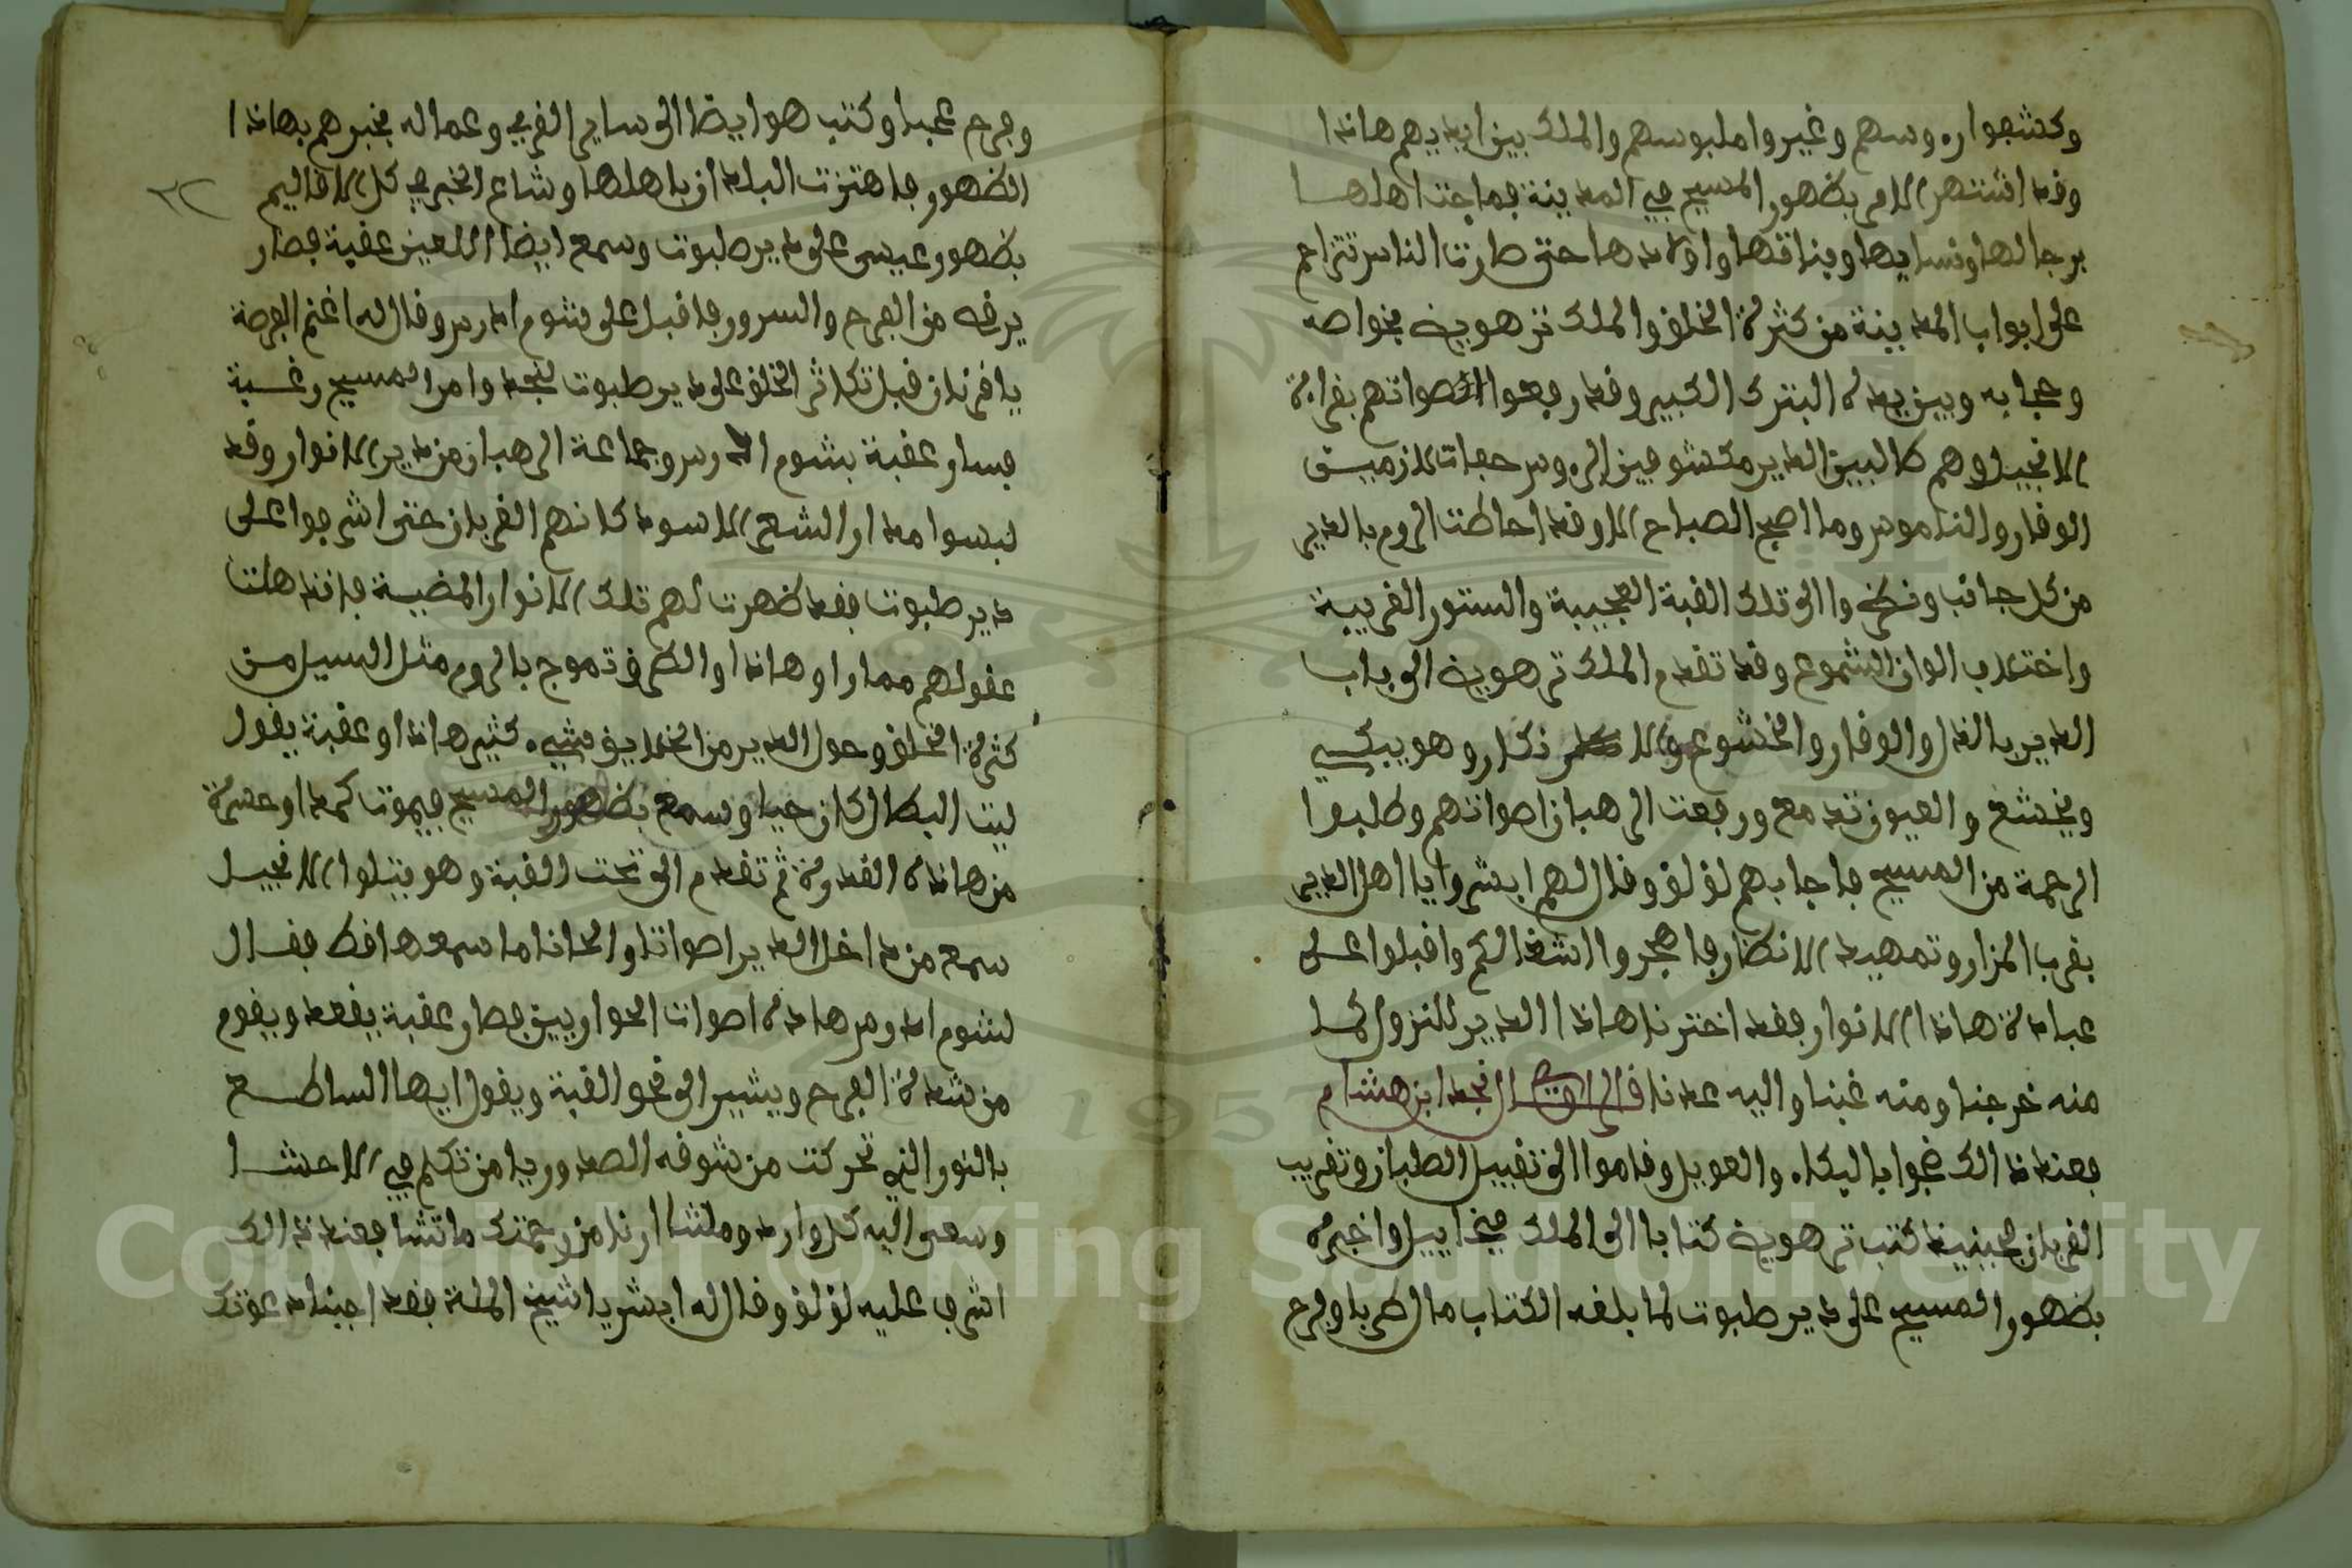 وكشفوا روسهم وغيروا ملبوسهم والملك بين ايديهم هاذا
وقد اشتهر الامر بظهور المسيح في المدينة فماجت اهلها
برجالها ونسايها وبناتها واولادها حتى صارت الناس تتزاحم
على ابواب المدينة من كثرة الخلق والملك ترهوية بخواصه
وحجابه وبين يديه البترك الكبير وقد رفعوا اصواتهم بقراءة
الانجيل وهم طالبين الدير مكشوفين الروس حفات لازمين
الوقار والناموس وما اصبح الصباح الا وقد احاطت الروم بالدير
من كل جانب ونظروا الى تلك القبة العجيبة والستور الغريبة
واختلاف الوان الشموع وقد تقدم الملك ترهوية الى باب
الدير بالذل والوقار والخشوع والا ذكار وهو يبكي
ويخشع والعيون تدمع ورفعت الرهبان اصواتهم وطلبوا
الرحمة من المسيح فاجابهم لؤلؤ وقال لهم ابشروا يا اهل الدير
بقرب المزار وتمهيد الانظار فاهجروا اشغالكم واقبلوا على
عبادة هاذا الانوار فقد اخترنا هاذا الدير للنزول كما
منه خرجنا ومنه غبنا واليه عدنا قال الراوي نجد ابن هشام
فعند ذالك ضجوا بالبكاء والعويل وقاموا الى تقبيل الصلبان وتقريب
القربان فحينيذ كتب ترهوية كتابا الى الملك ميخاييل واخبره
بظهور المسيح على دير طبوت لما بلغه الكتاب مال طربا وفرح
وفرح عجبا وكتب هو ايضا الى ساير القرى وعماله يخبرهم بهاذا
الظهور فاهتزت البلدان باهلها وشاع الخبر في كل الاقاليم
٣٢
بظهور عيسى على دير طبوت وسمع ايضا اللعين عقبة فصار
يرقص من الفرح والسرور فاقبل على شوم ادرس وقال له اغنم الفرصة
يا قرنان قبل تكاثر الخلق على دير طبوت لنجد وامر المسيح رغبة
فسار عقبة بشوم ادرس وجماعة الرهبان من دير الانوار وقد
لبسوا مدار الشعر الاسود كانهم الغربان حتى اشرفوا على
دير طبوت فقد ظهرت لهم تلك الانوار المضيية فاندهلت
عقولهم مما راو هاذا والطرق تموج بالروم مثل السيل من
كثرة الخلق وحول الدير من الخلايق شيء كثير هاذا وعقبة يقول
ليت البطال كان حيا وسمع بظهور المسيح فيموت كمدا وحسرة
من هاذه القدرة ثم تقدم الى تحت القبة وهو يتلوا الانجيل
سمع من داخل الدير اصواتا والحانا ما سمعها قط فقال
لشوم ادرس هاذه اصوات الحواريين فصار عقبة يقعد ويقوم
من شدة الفرح ويشير الى نحو القبة ويقول ايها الساطع
بالنور الذي تحركت من شوقه الصدور يا من تكلم في الاحشا
وسعى اليه كل وارد وملشا ارنا من رحمتك ما تشا فعند ذالك
اشرف عليه لؤلؤ وقال له ابشر يا شيخ الملة فقد اجبنا دعوتك